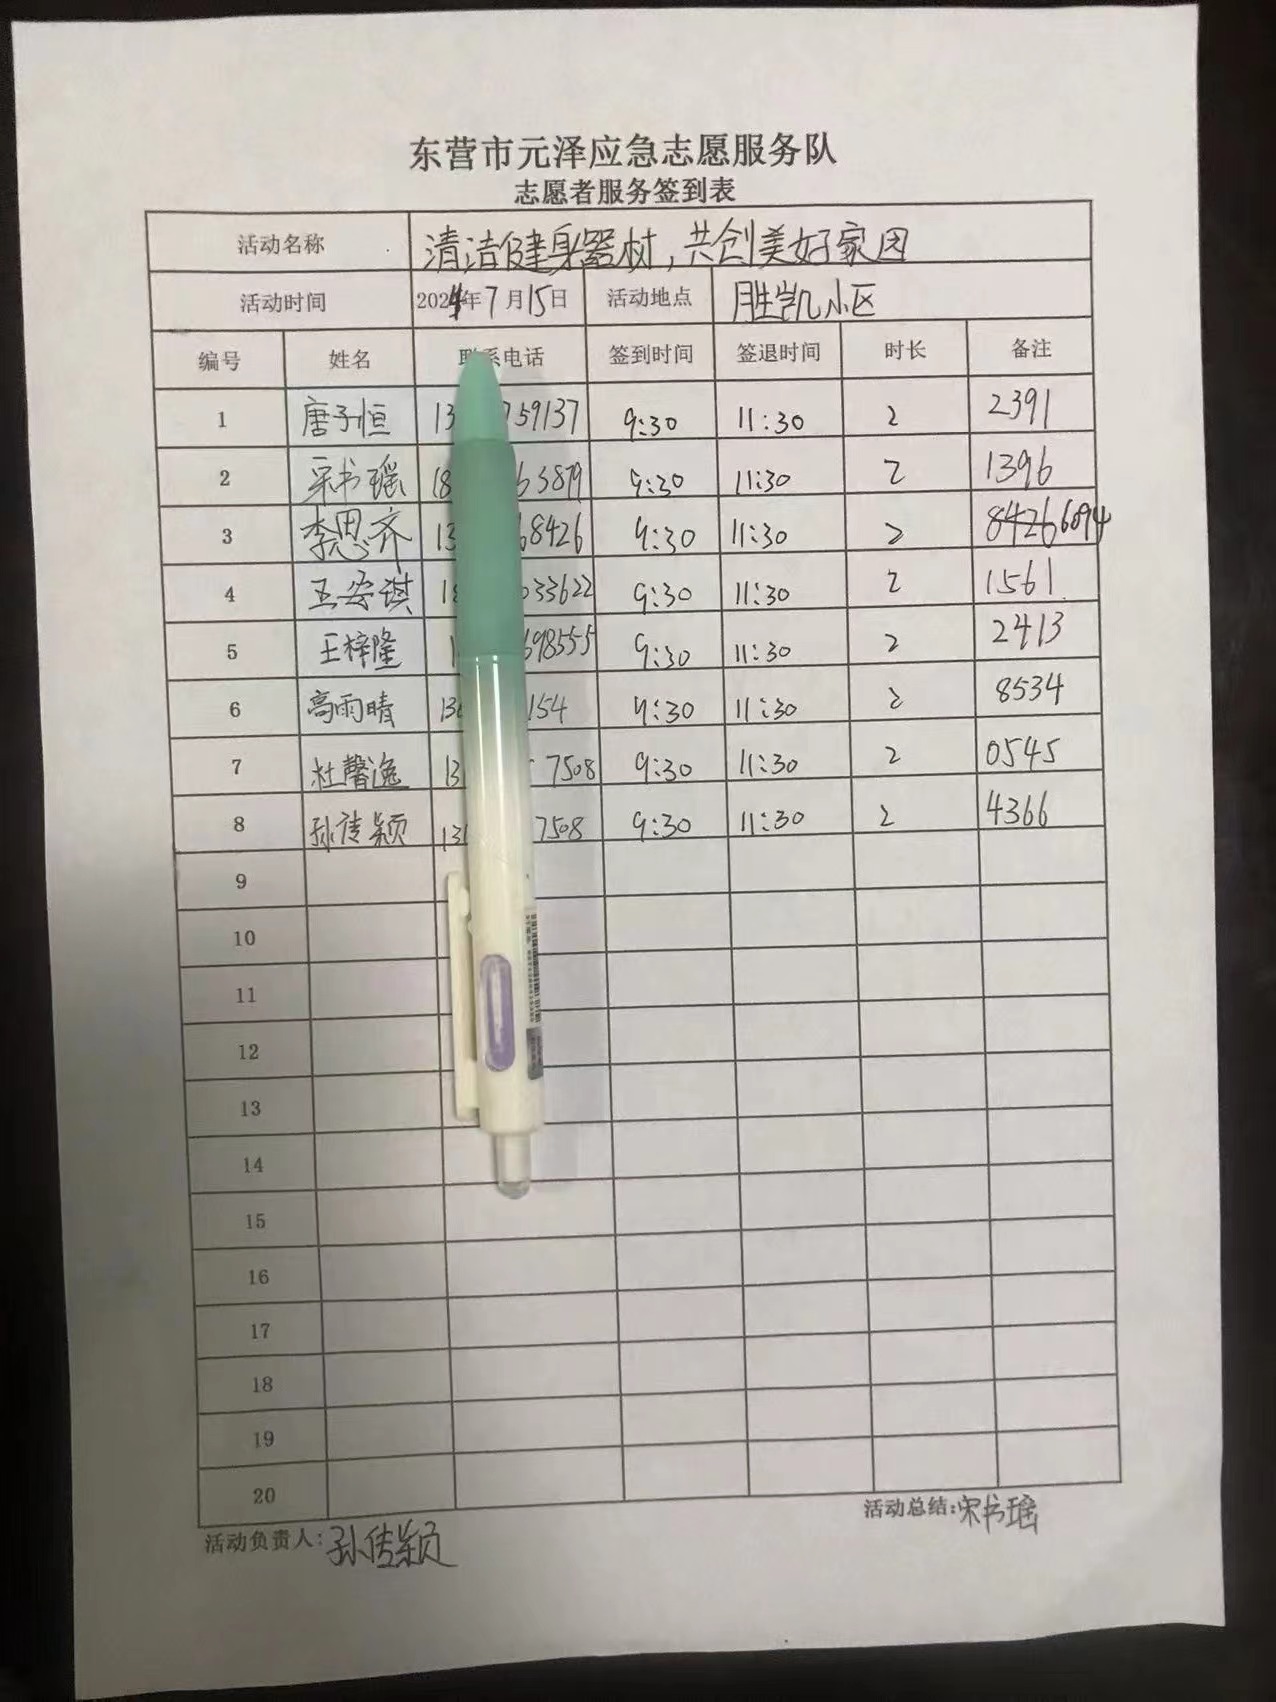 东营市元泽应急志愿服务队
志愿者服务签到表
活动名称 清洁健身器材,共创美好家园
活动时间 2024年7月15日 活动地点 胜凯小区
编号 姓名 联系电话 签到时间 签退时间 时长 备注
1 唐子恒 13 59137 9:30 11:30 2 2391
2 宋书瑶 18 63879 9:30 11:30 2 1396
3 李思齐 13 68426 9:30 11:30 2 6094
4 王安祺 18 033622 9:30 11:30 2 1561
5 王梓隆 1 698555 9:30 11:30 2 2413
6 高雨晴 13 154 9:30 11:30 2 8534
7 杜馨逸 13 7508 9:30 11:30 2 0545
8 孙传颖 13 7508 9:30 11:30 2 4366
9
10
11
12
13
14
15
16
17
18
19
20
活动负责人:孙传颖 活动总结:宋书瑶